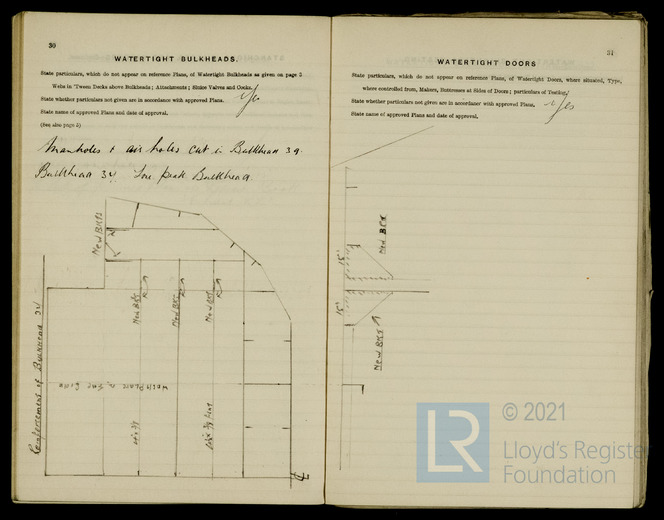 30
WATERTIGHT BULKHEADS.
State particulars, which do not appear on reference Plans, of Watertight Bulkheads as given on page 2
Webs in 'Tween Decks above Bulkheads; Attachments; Sluice Valves and Cocks.
State whether particulars not given are in accordance with approved Plans. Yes
State name of approved Plans and date of approval.
(See also page 5)
Manholes & air holes cut in Bulkhead 39.
Bulkhead 34 Fore peak Bulkhead
New BKTS
New BKT
New BKT
New BKT
Reinforcement of Bulkhead 34
31
WATERTIGHT DOORS
State particulars, which do not appear on reference Plans, of Watertight Doors, where situated, Type,
where controlled from, Makers, Buttresses at Sides of Doors; particulars of Testing.
State whether particulars not given are in accordance with approved Plans, Yes
State name of approved Plans and date of approval.
New BKT
18"
18"
New BKT
LR
© 2021
Lloyd's Register
Foundation